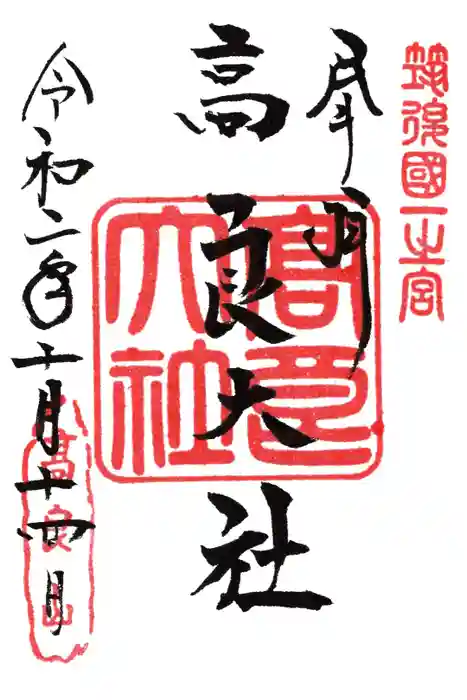 筑後國一之宮
奉拝
高良大社
高良大社
令和二年十一月十四日
高良山